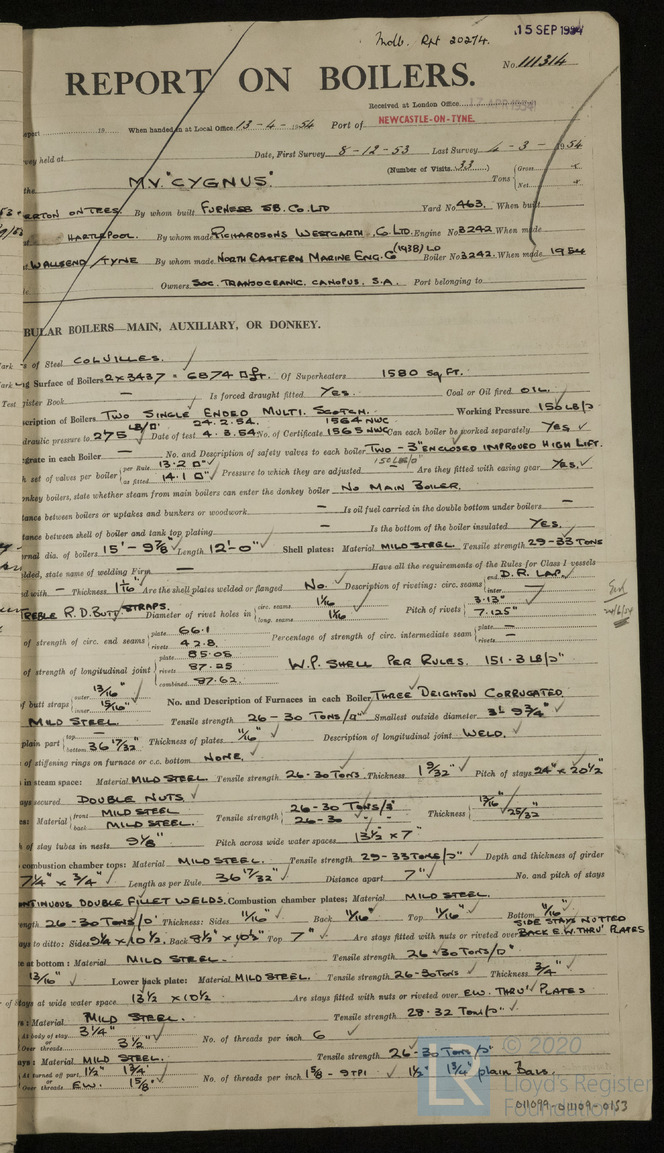 15 SEP 1954
Mdb. Rpt 20274.
No. 111314
REPORT ON BOILERS.
Received at London Office
NEWCASTLE-ON-TYNE.
19 When handed in at Local Office 13-4-1954 Port of
Date, First Survey 8-12-53 Last Survey 4-3-1954
(Number of Visits 33)
Gross
M.V. "CYGNUS" Tons
Net
ERTON ON TEES. By whom built FURNESS SB. CO. LTD Yard No. 463. When built
HARTLEPOOL. By whom made RICHARDSONS WESTGARTH & CO. LTD. Engine No. 3242 When made
(1938) LD
WALLSEND/TYNE By whom made NORTH EASTERN MARINE ENG. CO Boiler No. 3242. When made 1954
Owners SOC. TRANSOCEANIC. CANOPUS. S.A. Port belonging to
BULAR BOILERS—MAIN, AUXILIARY, OR DONKEY.
of Steel COLVILLES.
ng Surface of Boilers 2x3437 = 6874 □ft. Of Superheaters 1580 sq. ft.
gister Book — Is forced draught fitted YES. Coal or Oil fired OIL.
scription of Boilers TWO SINGLE ENDED MULTI. SCOTCH. Working Pressure 150 LB/□
24.2.54. 1564 NWC
draulic pressure to 275 LB/□" Date of test 4.3.54 No. of Certificate 1565 NWC Can each boiler be worked separately YES
grate in each Boiler — No. and Description of safety valves to each boiler TWO - 3" ENCLOSED IMPROVED HIGH LIFT.
per Rule 13.2 □" 150 LB/□"
h set of valves per boiler as fitted 14.1 □" Pressure to which they are adjusted — Are they fitted with easing gear YES.
onkey boilers, state whether steam from main boilers can enter the donkey boiler NO MAIN BOILER.
tance between boilers or uptakes and bunkers or woodwork — Is oil fuel carried in the double bottom under boilers —
tance between shell of boiler and tank top plating — Is the bottom of the boiler insulated YES.
rnal dia. of boilers 15' - 9 7/8" Length 12'-0" Shell plates: Material MILD STEEL Tensile strength 29-33 TONS
elded, state name of welding Firm — Have all the requirements of the Rules for Class I vessels
end D.R. LAP.
d with — Thickness 1 1/16" Are the shell plates welded or flanged NO. Description of riveting: circ. seams
inter. —
REBLE R.D. BUTT STRAPS. Diameter of rivet holes in circ. seams 1 1/16 long. seams 1 1/16 Pitch of rivets 3.13" 7.125"
of strength of circ. end seams plate 66.1 rivets 42.8 Percentage of strength of circ. intermediate seam plate — rivets —
plate 85.05
of strength of longitudinal joint rivets 87.25 W.P. SHELL PER RULES. 151.3 LB/□"
combined 87.62.
of butt straps outer 13/16" inner 15/16" No. and Description of Furnaces in each Boiler THREE DEIGHTON CORRUGATED
MILD STEEL Tensile strength 26-30 TONS/□" Smallest outside diameter 3'- 9 3/4"
plain part top — bottom 36 17/32" Thickness of plates 11/16" Description of longitudinal joint WELD.
of stiffening rings on furnace or c.c. bottom NONE.
in steam space: Material MILD STEEL. Tensile strength 26-30 TONS. Thickness 1 9/32" Pitch of stays 24" x 20 1/2"
ays secured DOUBLE NUTS
es: Material front MILD STEEL back MILD STEEL. Tensile strength 26-30 TONS/□" 26-30 " Thickness 13/16" 25/32"
h of stay tubes in nests 9 1/8" Pitch across wide water spaces 13 1/2 x 7"
combustion chamber tops: Material MILD STEEL. Tensile strength 29-33 TONS/□" Depth and thickness of girder
7 1/4" x 3/4" Length as per Rule 36 17/32" Distance apart 7" No. and pitch of stays
ONTINUOUS DOUBLE FILLET WELDS. Combustion chamber plates; Material MILD STEEL.
ength 26-30 TONS/□" Thickness: Sides 11/16" Back 11/16" Top 11/16" Bottom 11/16"
SIDE STAYS NUTTED
ays to ditto: Sides 9 1/4 x 10 1/2. Back 8 1/2" x 10 1/2" Top 7" Are stays fitted with nuts or riveted over BACK E.W. THRU' PLATES
te at bottom: Material MILD STEEL. Tensile strength 26-30 TONS/□"
13/16" Lower back plate: Material MILD STEEL. Tensile strength 26-30 TONS Thickness 3/4"
of stays at wide water space 13 1/2 x 10 1/2 Are stays fitted with nuts or riveted over E.W. THRU' PLATES
rs: Material MILD STEEL. Tensile strength 28-32 TONS/□"
At body of stay 3 1/4"
or No. of threads per inch 6
Over threads 3 1/2"
ays: Material MILD STEEL. Tensile strength 26-30 TONS/□"
At turned off part 1 1/2" 1 3/4"
or No. of threads per inch 1 5/8 - 9 TPI 1 1/2" 1 3/4" plain Bars.
Over threads E.W. 1 5/8"
© 2020
LR Lloyd's Register
Foundation
011099-011109-0153